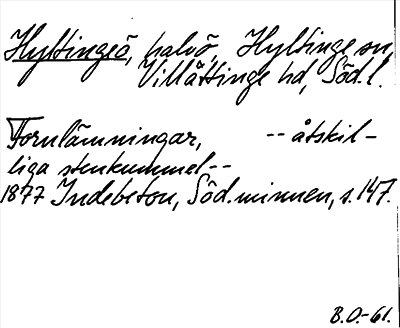 Hyltingeö, halvö, Hyltinge sn,
Villåttinge hd, Söd.l.
Fornlämningar, -- åtskil-
liga stenkummel --
1877 Indebetou, Söd.minnen, s.147.
B.O.-61.